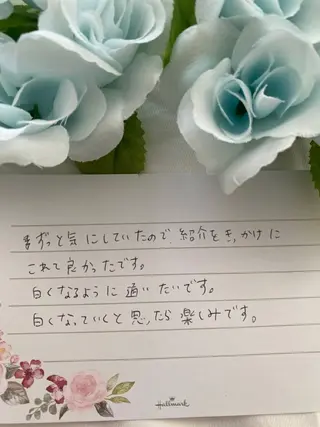 ずっと気にしていたので、紹介をきっかけに
これて良かったです。
白くなるように通いたいです。
白くなっていくと思ったら楽しみです。
Hallmark